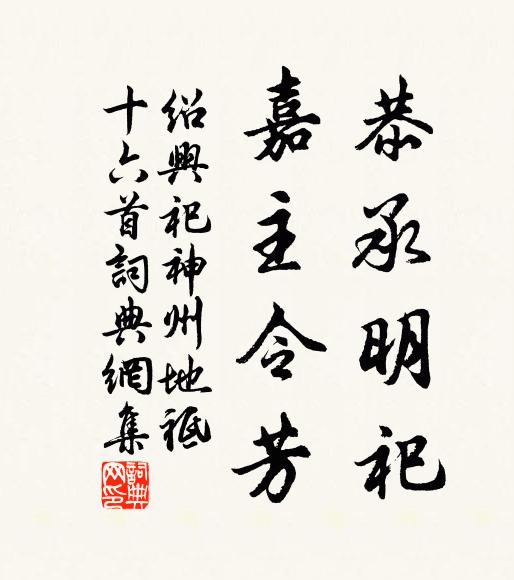 恭承明祀
嘉主令芳
紹興祀神州地祇
十六首詞典網集
詞典網印